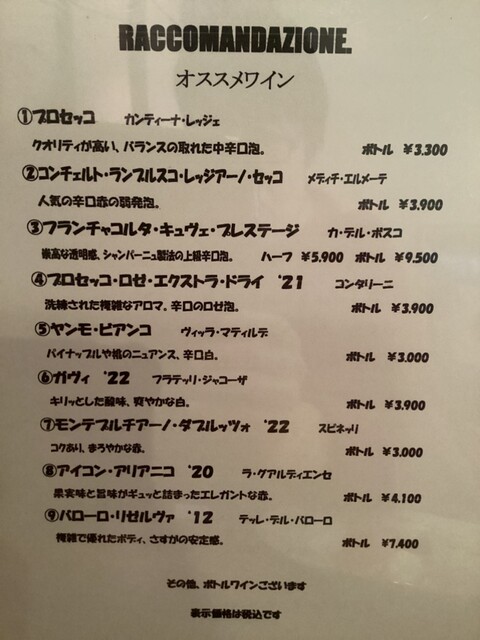 RACCOMANDAZIONE.
オススメワイン
①プロセッコ カンティーナ・レッジェ
クオリティが高い、バランスの取れた中辛口泡。 ボトル ¥3.300
②コンチェルト・ランブルスコ・レッジアーノ・セッコ メディチ・エルメーテ
人気の辛口赤の弱発泡。 ボトル ¥3.900
③フランチャコルタ・キュヴェ・プレステージ カ・デル・ボスコ
崇高な透明感、シャンパーニュ製法の上級辛口泡。 ハーフ ¥5.900 ボトル ¥9.500
④プロセッコ・ロゼ・エクストラ・ドライ '21 コンタリーニ
洗練された複雑なアロマ。辛口のロゼ泡。 ボトル ¥3.900
⑤ヤンモ・ビアンコ ヴィッラ・マティルデ
パイナップルや桃のニュアンス、辛口白。 ボトル ¥3.000
⑥ガヴィ '22 フラテッリ・ジャコーザ
キリッとした酸味、爽やかな白。 ボトル ¥3.900
⑦モンテプルチアーノ・ダブルッツォ '22 スピネッリ
コクあり、まろやかな赤。 ボトル ¥3.000
⑧アイコン・アリアニコ '20 ラ・グアルディエンセ
果実味と旨味がギュッと詰まったエレガントな赤。 ボトル ¥4.100
⑨バローロ・リゼルヴァ '12 テッレ・デル・バローロ
複雑で優れたボディ、さすがの安定感。 ボトル ¥7.400
その他、ボトルワインございます
表示価格は税込です